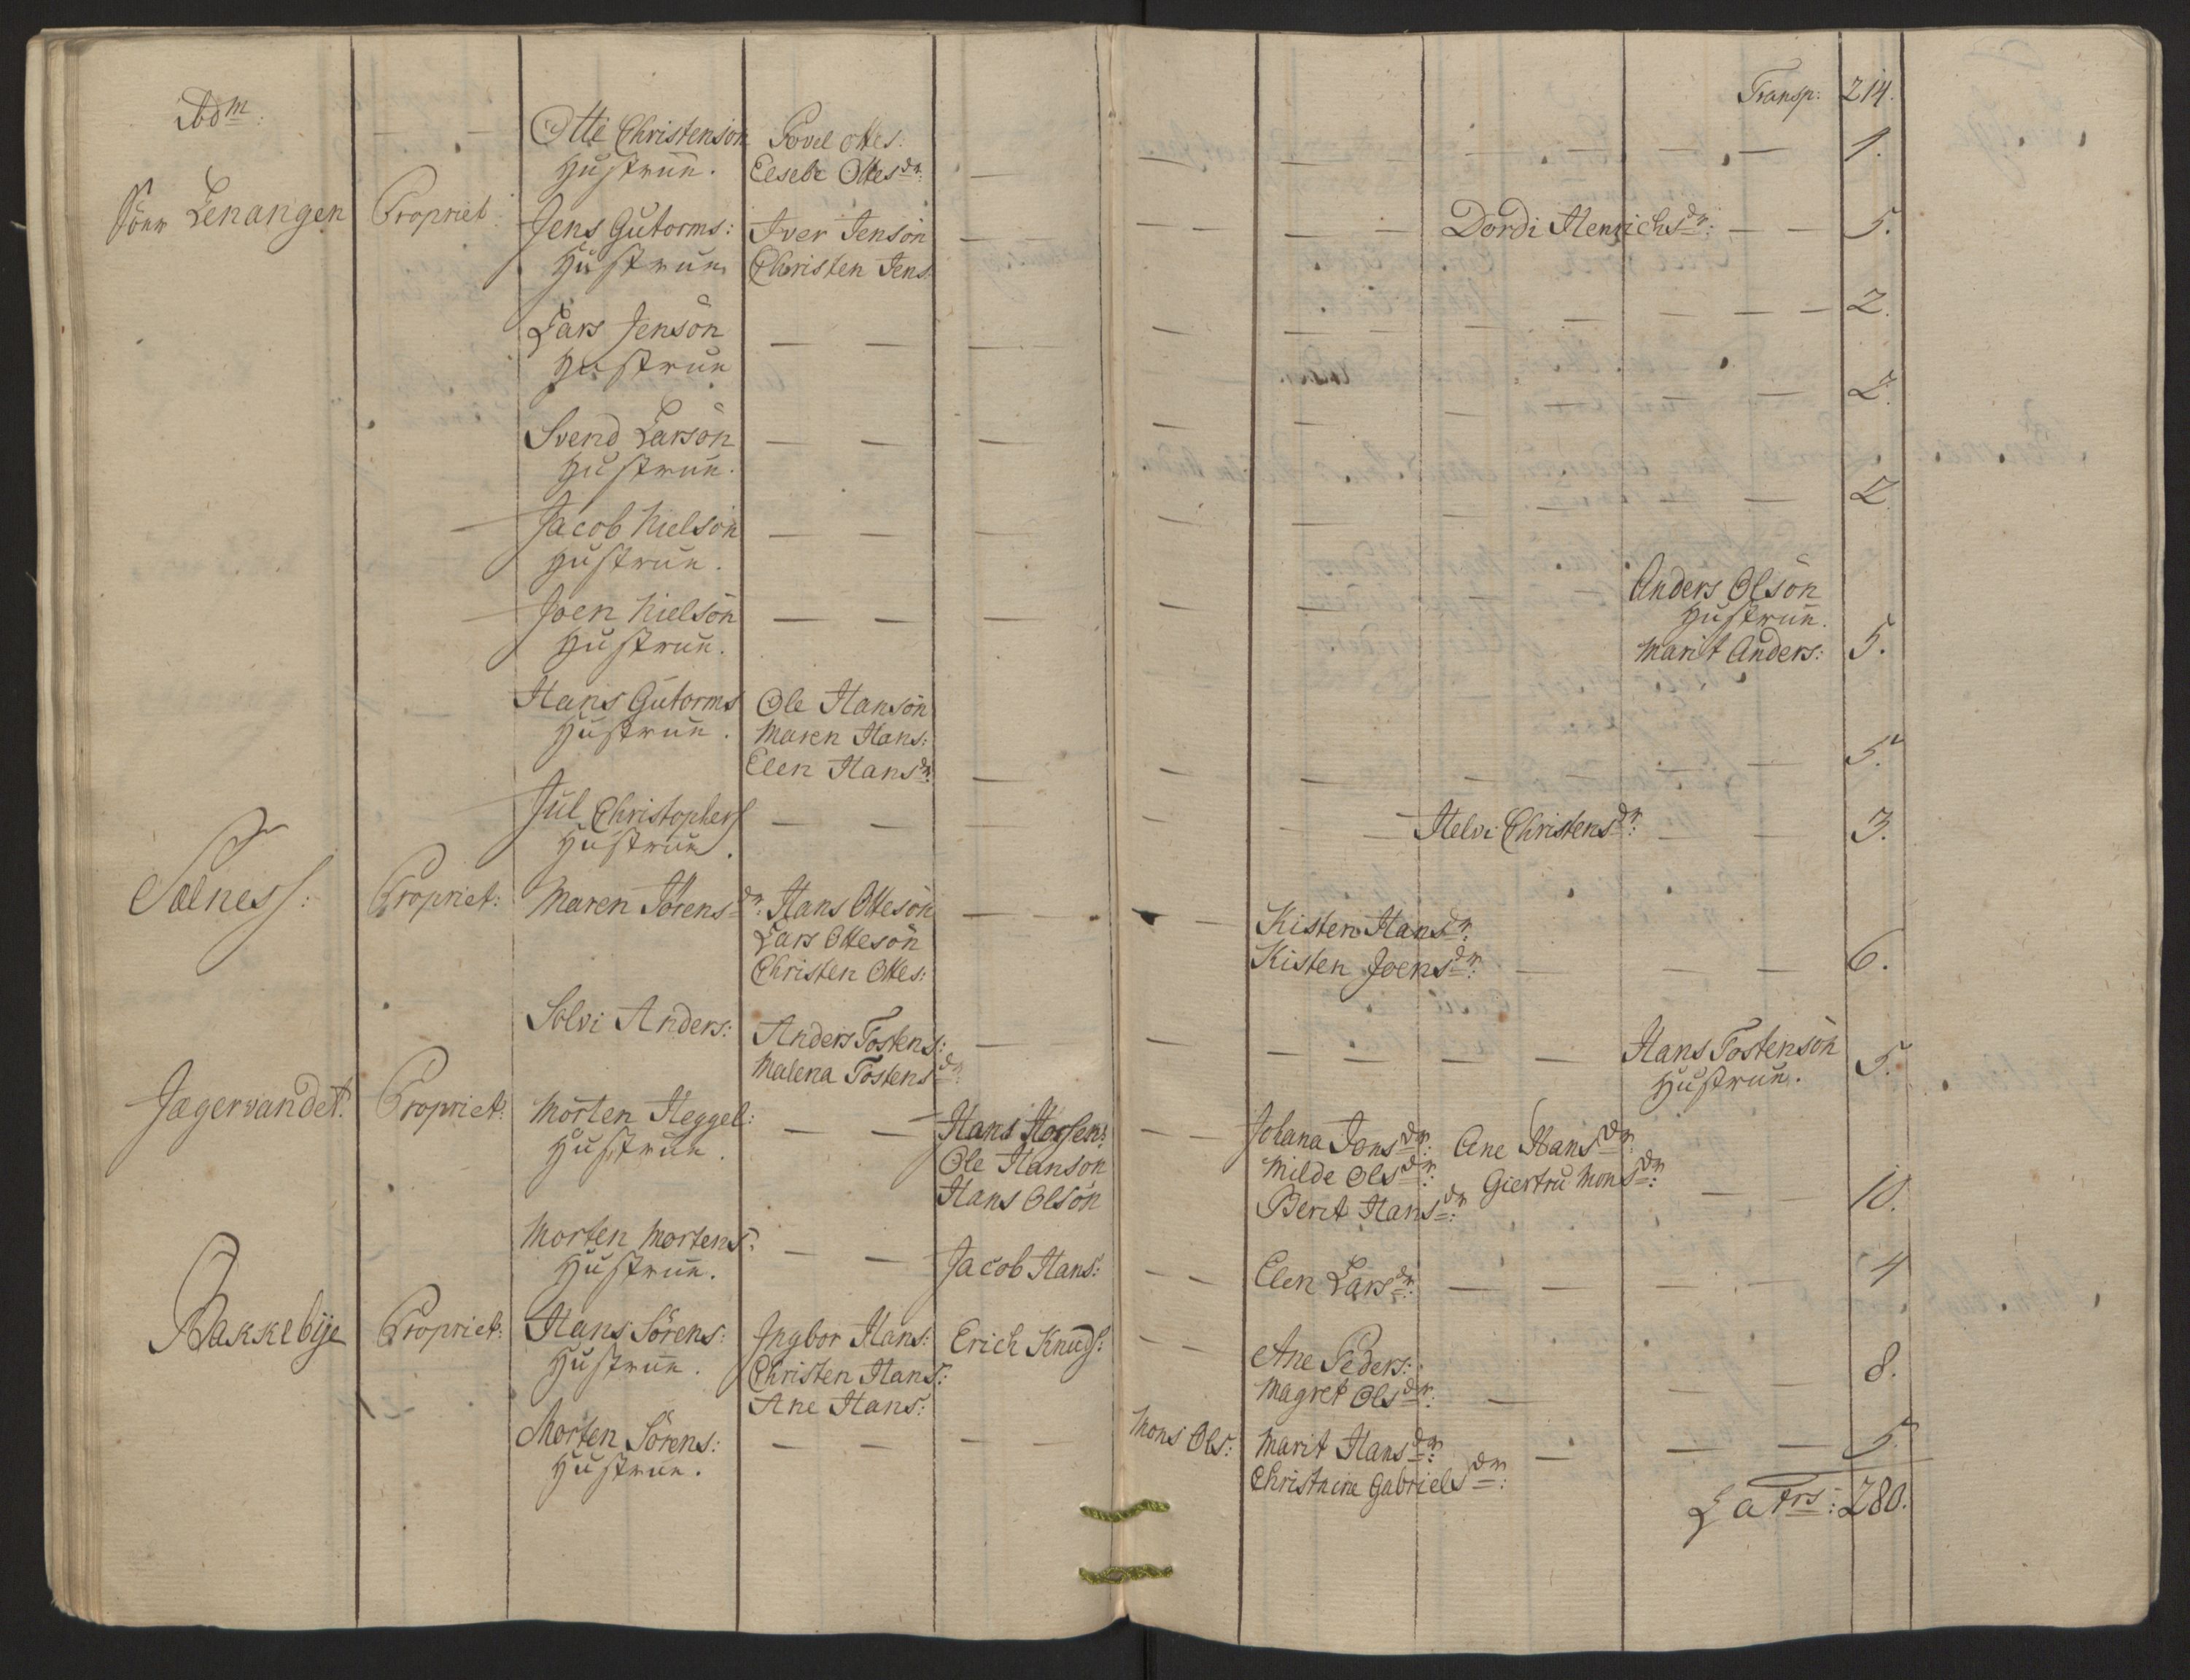 Transp: 214.
ibdm:
Otte Christensøn Povel Ottes: 1.
Hustrue. Elsebe Ottesdr:
Søer Lenangen Propriet: Jens Gutorms: Iver Jensøn Dordi Henrichsdr: 5.
Hustrue Christen Jens
Lars Jensøn 2.
Hustrue
Svend Larsøn 2.
Hustrue.
Jacob Nielsøn 2
Hustrue.
Joen Nielsøn Anders Olsøn
Hustrue. Hustrue.
Marit Anders: 5.
Hans Gutorms Ole Hansøn
Hustrue. Maren Hans:
Elen Hansdr: 5.
Jul Christophers Helvi Christensdr: 3.
Hustrue.
Propriet: Maren Sørensdr: Hans Ottesøn Kisten Hansdr:
Lars Ottesøn Kisten Joensdr: 6.
Christen Ottes:
Solvi Anders: Anders Tostens: Hans Tostensøn 5.
Malena Tostensdr: Hustrue.
Jagervandet. Propriet: Morten Heggel: Hans Johana Jonsdr: Ane Hansdr:
Hustrue. Ole Hansøn Milde Olsdr: Giertru Monsdr:
Hans Olsøn Berit Hansdr: 10.
Morten Mortens: Jacob Hans: Elen Larsdr: 4
Hustrue.
Bakkebije Propriet: Hans Sørens: Ingbor Hans: Erich Knuds: Ane Peders: 8.
Hustrue. Christen Hans: Magret Olsdr:
Ane Hans:
Morten Sørens: Mons Ols: Marit Hansdr: 5.
Hustrue. Christnine Gabrielsdr:
Latrs: 280.